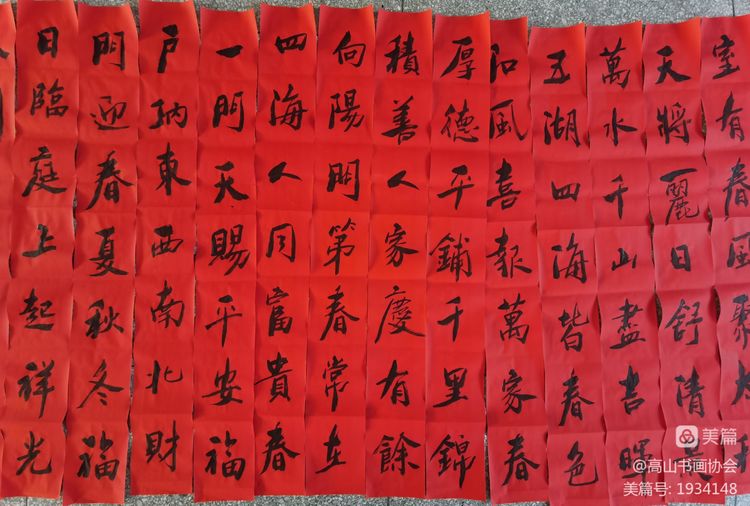 室有春風聚
天將麗日舒清景
萬水千山盡暉
五湖四海皆春色
和風喜報萬家春
厚德平鋪千里錦
積善人家慶有餘
向陽門第春常在
四海人同富貴春
一門天賜平安福
戶納東西南北財
門迎春夏秋冬福
日臨庭上起祥光
美篇
@高山书画协会
美篇号: 1934148